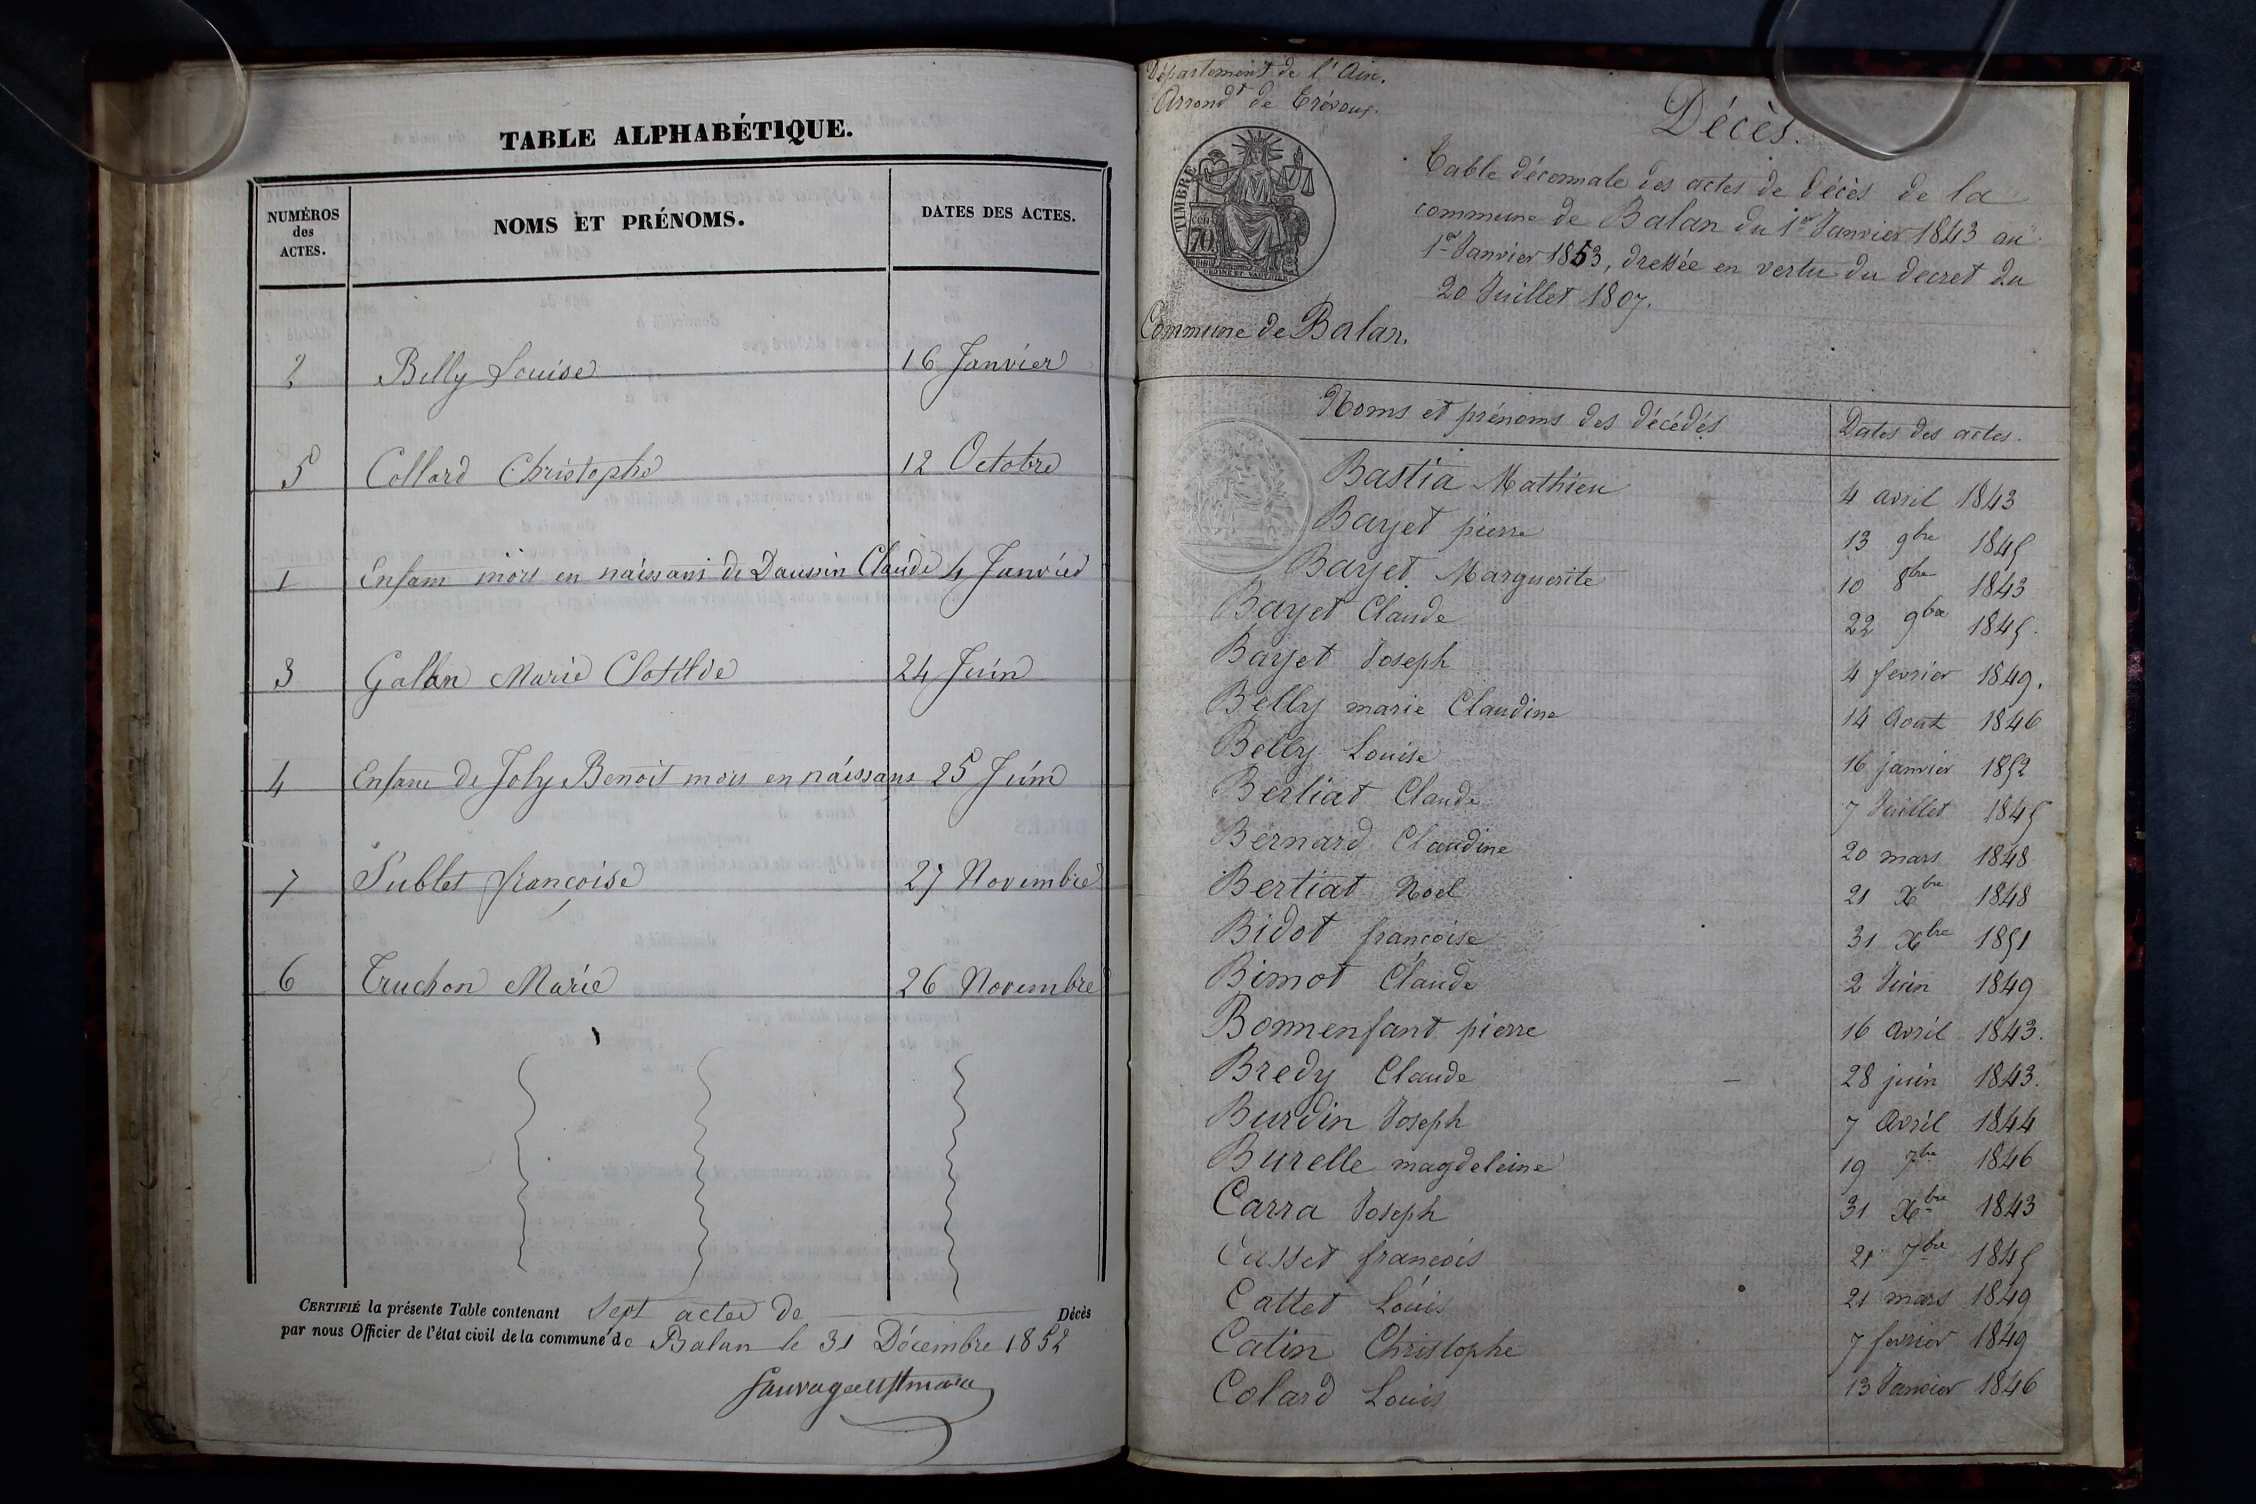 TABLE ALPHABÉTIQUE.
NUMÉROS
des
ACTES.
NOMS ET PRÉNOMS.
DATES DES ACTES.
2 Belly Louise 16 Janvier
5 Collard Christophe 12 Octobre
1 Enfant mort en naissant de Daussin Claude 4 Janvier
3 Gallan Marie Clotilde 24 Juin
4 Enfant de Joly Benoit mort en naissant 25 Juin
7 Sublet françoise 27 Novembre
6 Truchon Marie 26 Novembre
CERTIFIÉ la présente Table contenant Sept actes de Décès
par nous Officier de l'état civil de la commune de Balan le 31 Décembre 1852
Département de l'Ain.
Arrondt de Trévoux.
TIMBRE
70
Commune de Balan.
Décès.
Table décennale des actes de décès de la
commune de Balan du 1er Janvier 1843 au
1er Janvier 1853, dressée en vertu du decret du
20 Juillet 1807.
Noms et prénoms des décédés Dates des actes.
Bastia Mathieu 4 avril 1843
Bayet pierre 13 9bre 1845
Bayet Marguerite 10 8bre 1843
Bayet Claude 22 9bre 1845.
Bayet Joseph 4 fevrier 1849.
Belly marie Claudine 14 Aout 1846
Belly Louise 16 janvier 1852
Bertiat Claude 7 Juillet 1845
Bernard Claudine 20 mars 1848
Bertiat Noel 21 Xbre 1848
Bidot françoise 31 Xbre 1851
Bimot Claude 2 Juin 1849
Bonnenfant pierre 16 Avril 1843.
Bredy Claude 28 juin 1843.
Burdin Joseph 7 Avril 1844
Burelle magdeleine 19 7bre 1846
Carra Joseph 31 Xbre 1843
Casset francois 21 7bre 1845
Cattet Louis 21 mars 1849
Catin Christophe 7 fevrier 1849
Colard Louis 13 Janvier 1846